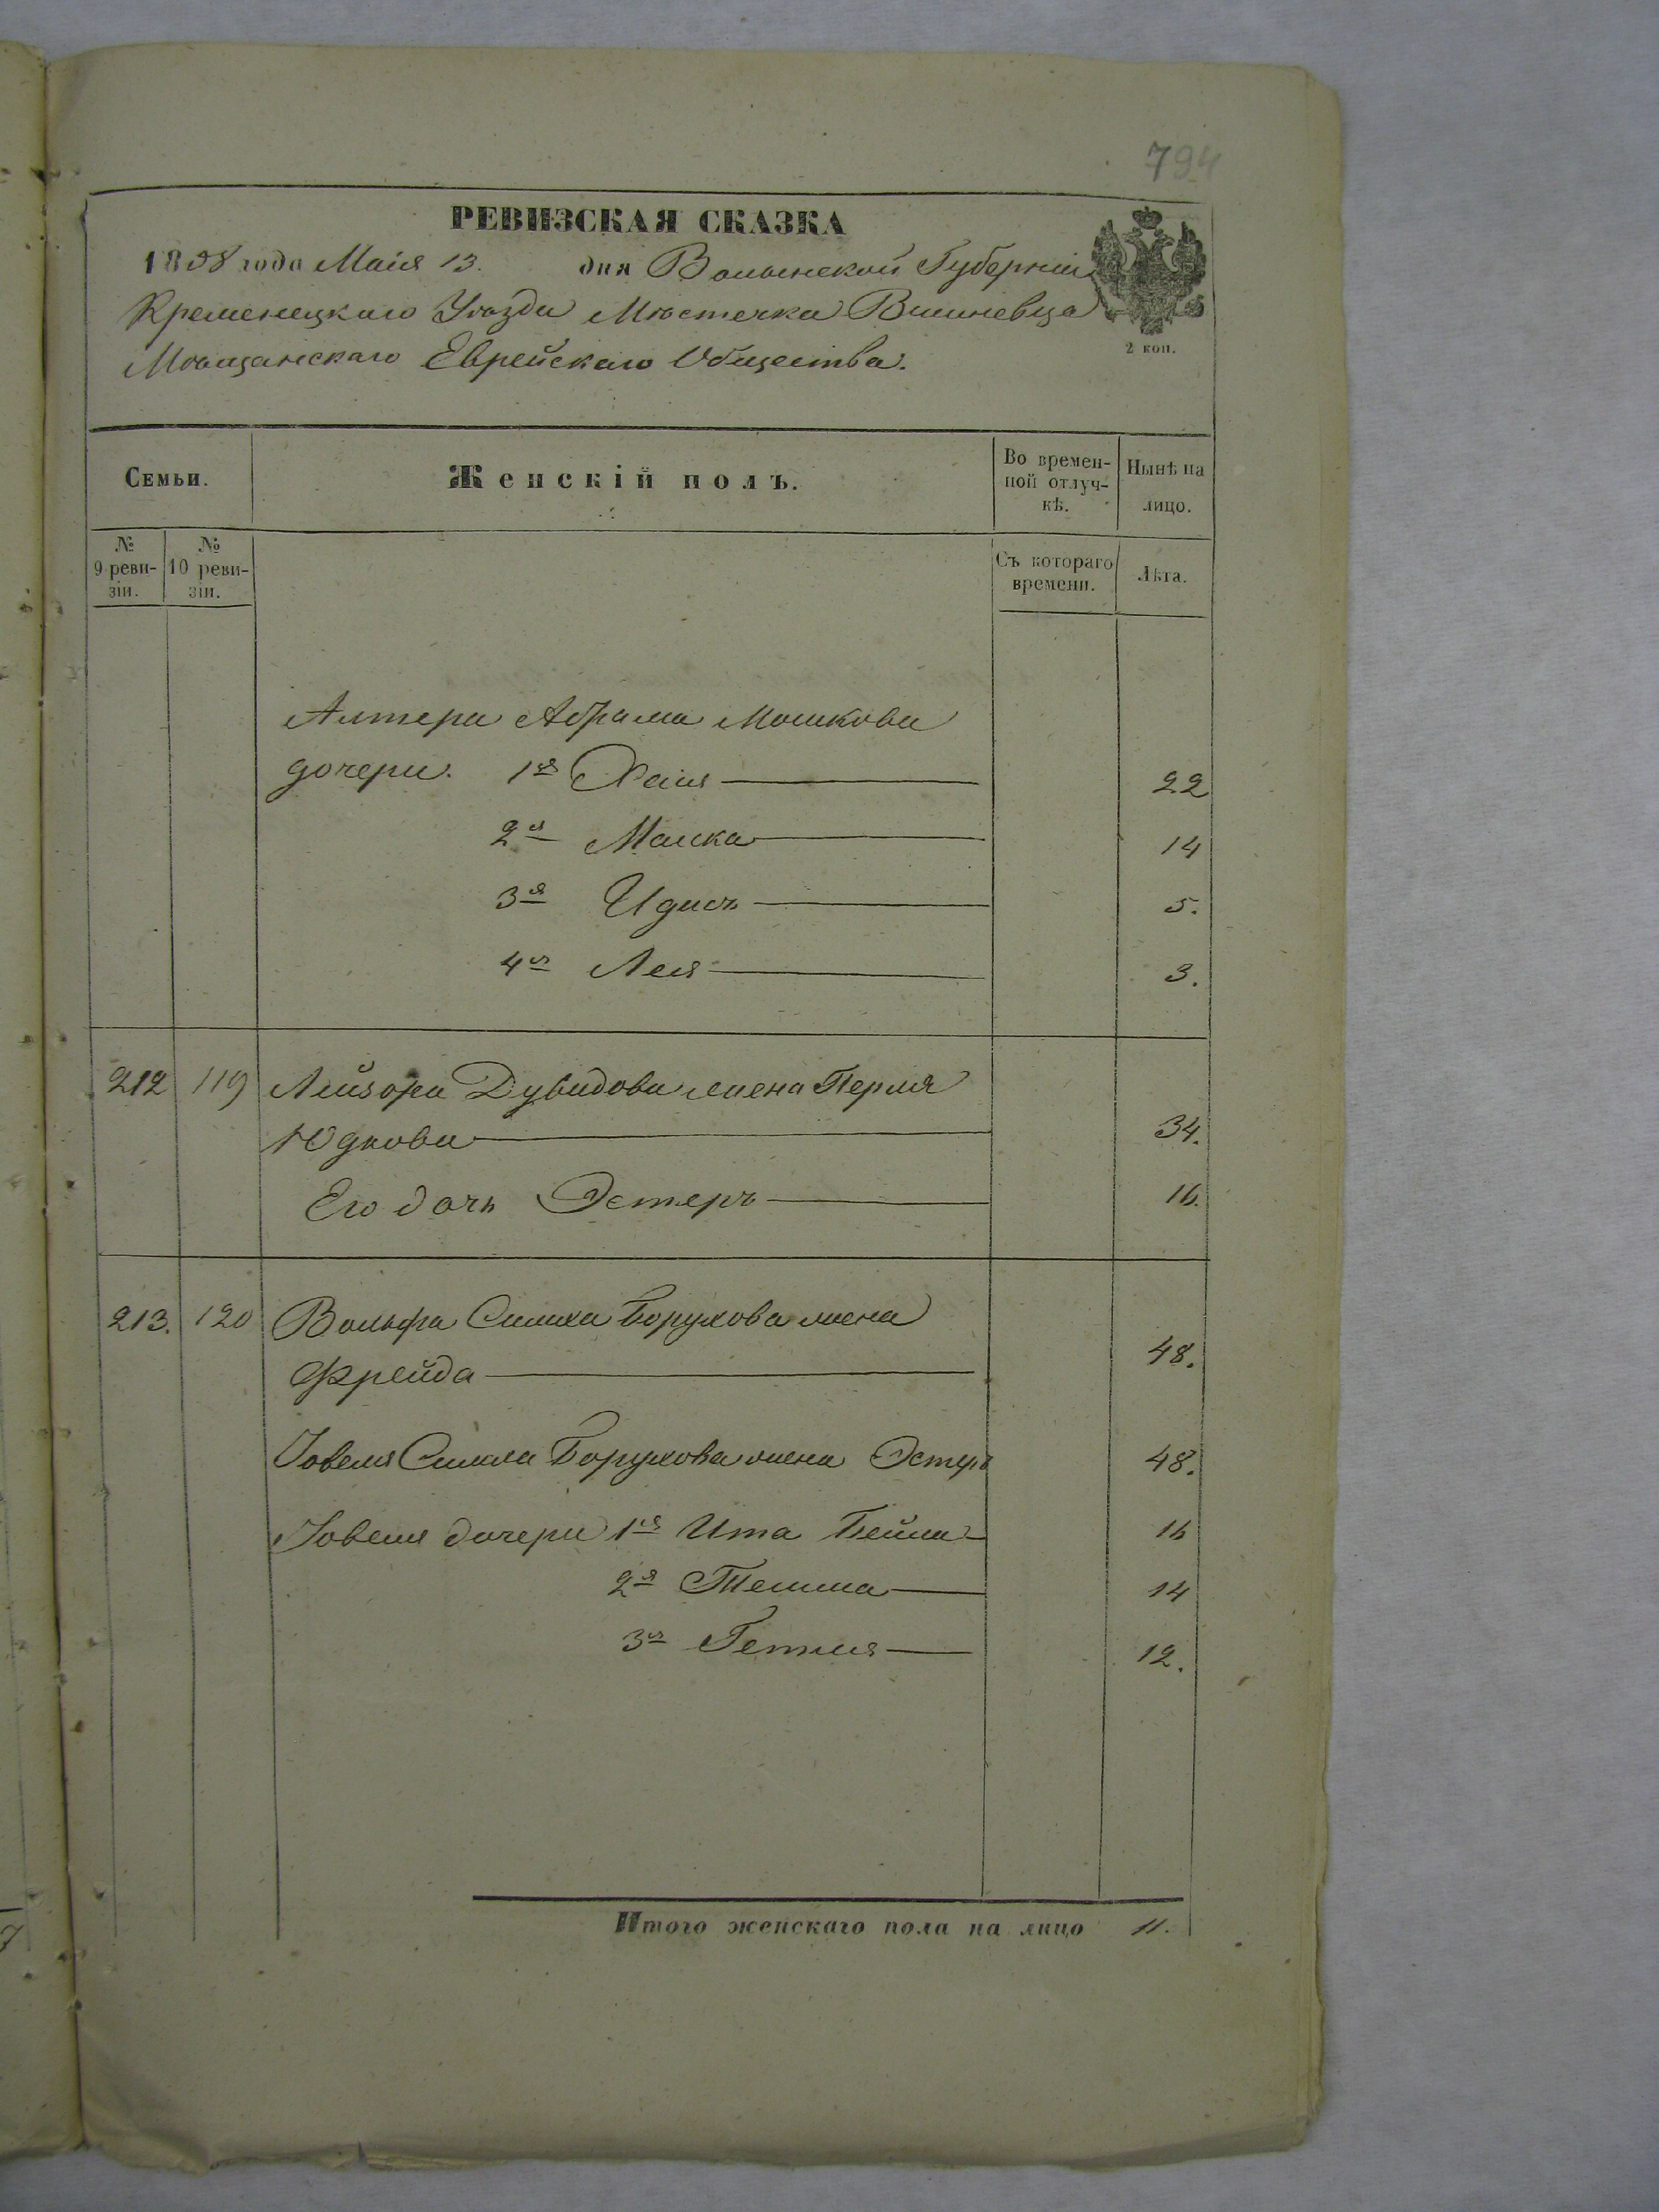 794
РЕВИЗСКАЯ СКАЗКА
1858 года Маія 13. дня Волынской Губерніи
Кременецкаго Уѣзда Мѣстечка Вишневца
Мѣщанскаго Еврейскаго Общества.
2 коп.
Семьи.
Женскій полъ.
Во времен-
ной отлуч-
кѣ.
Нынѣ на
лицо.
№
9 реви-
зіи.
№
10 реви-
зіи.
Съ котораго
времени.
Лѣта.
Алтера Абрама Мошкова
дочери. 1я Хаия 22
2я Малка 14
3я Идесъ 5.
4я Лея 3.
212 119 Лейзора Дувидова жена Перля
Юдкова 34.
Его дочь Эстеръ 16.
213. 120 Вольфа Симха Борухова жена
Фрейда 48.
Іовеля Симха Борухова жена Эстеръ 48.
Іовеля дочери 1я Ита Бейла 16
2я 14
3я Гетля 12.
Итого женскаго пола на лицо 11.